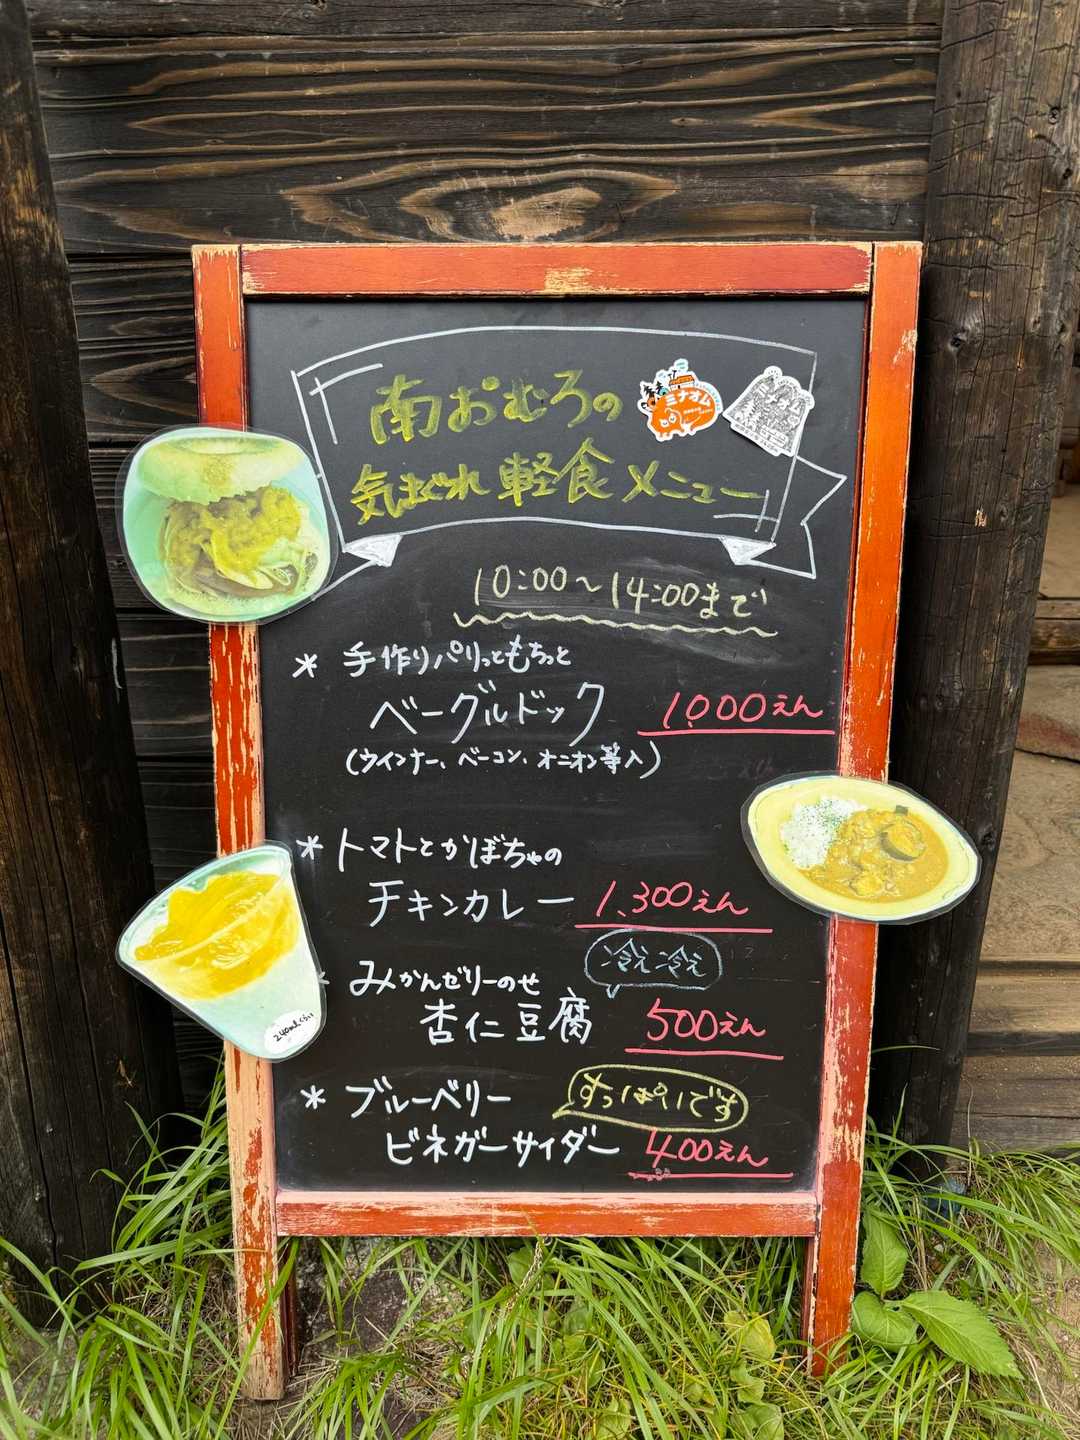 南おむろの
気まぐれ軽食メニュー
ミナオム
ミナオム
10:00〜14:00まで
* 手作りパリっともちっと
ベーグルドック 1,000えん
(ウインナー、ベーコン、オニオン等入)
* トマトとかぼちゃの
チキンカレー 1,300えん
冷え冷え
みかんゼリーのせ
杏仁豆腐 500えん
240mlくらい
* ブルーベリー すっぱいです
ビネガーサイダー 400えん